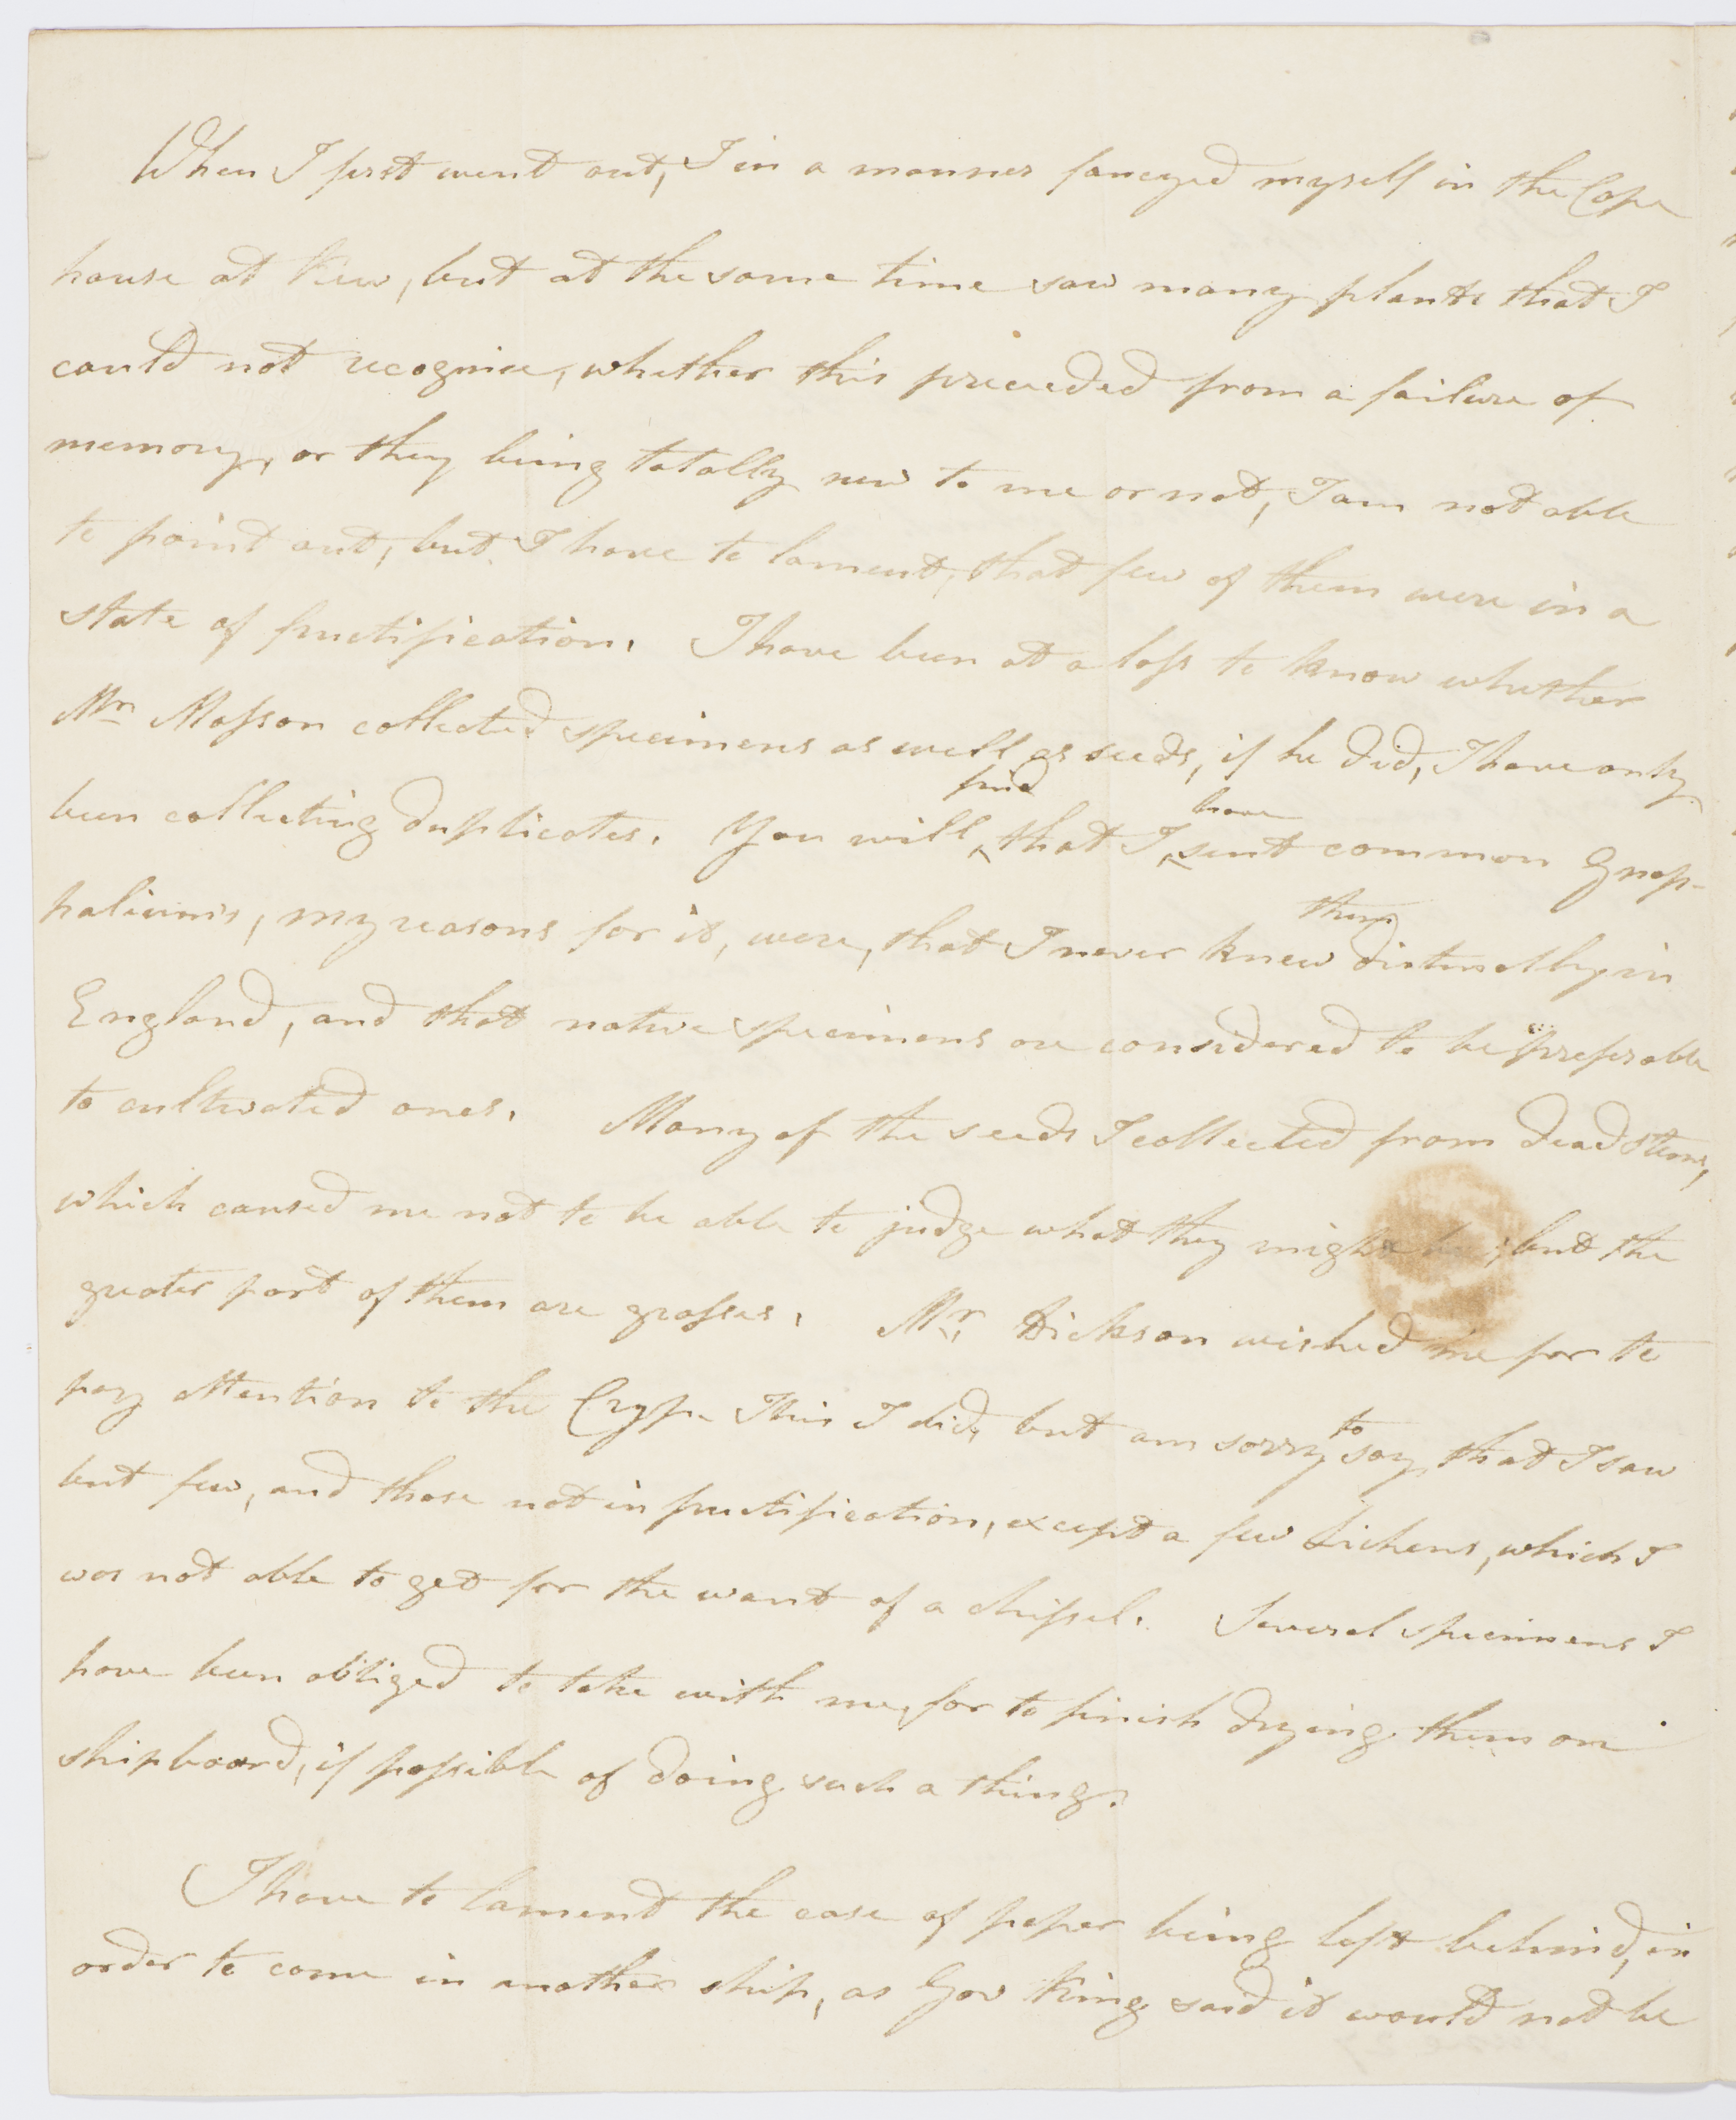 When I first went out, I in a manner fancyed myself in the Cape
house at Kew, but at the same time saw many plants that I
could not recognise, whether this proceeded from a failure of
memory, or they being totally new to me or not, I am not able
to point out, but I have to lament, that few of them were in a
state of fructification. I have been at a loss to know whether
Mr Masson collected specimens as well as seeds, if he did, I have only
been collecting duplicates. You will find that I have sent common Gnap-
haliums, my reasons for it, were, that I never knew them distinctly in
England, and that native specimens are considered to be preferable
to cultivated ones. Many of the seeds I collected from dead stems,
which caused me not to be able to judge what they might be; but the
greater part of them are grasses. Mr. Dickson wished me for to
pay attention to the Cryp. This I did, but am sorry to say, that I saw
but few, and those not in fructification, except a few Lichens, which I
was not able to get for the want of a chissel. Several specimens I
have been obliged to take with me, for to finish drying them on
shipboard, if possible of doing such a thing.
I have to lament the case of paper being left behind, in
order to come in another ship, as Gov King said it would not be